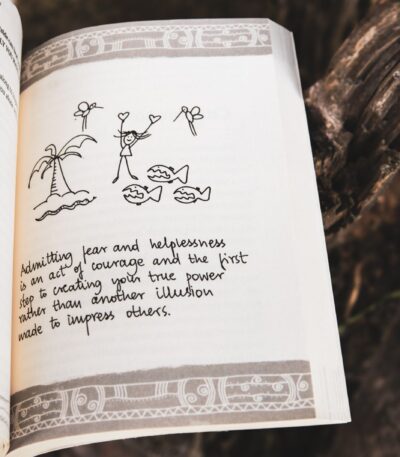 Admitting fear and helplessness
is an act of courage and the first
step to creating your true power
rather than another illusion
made to impress others.